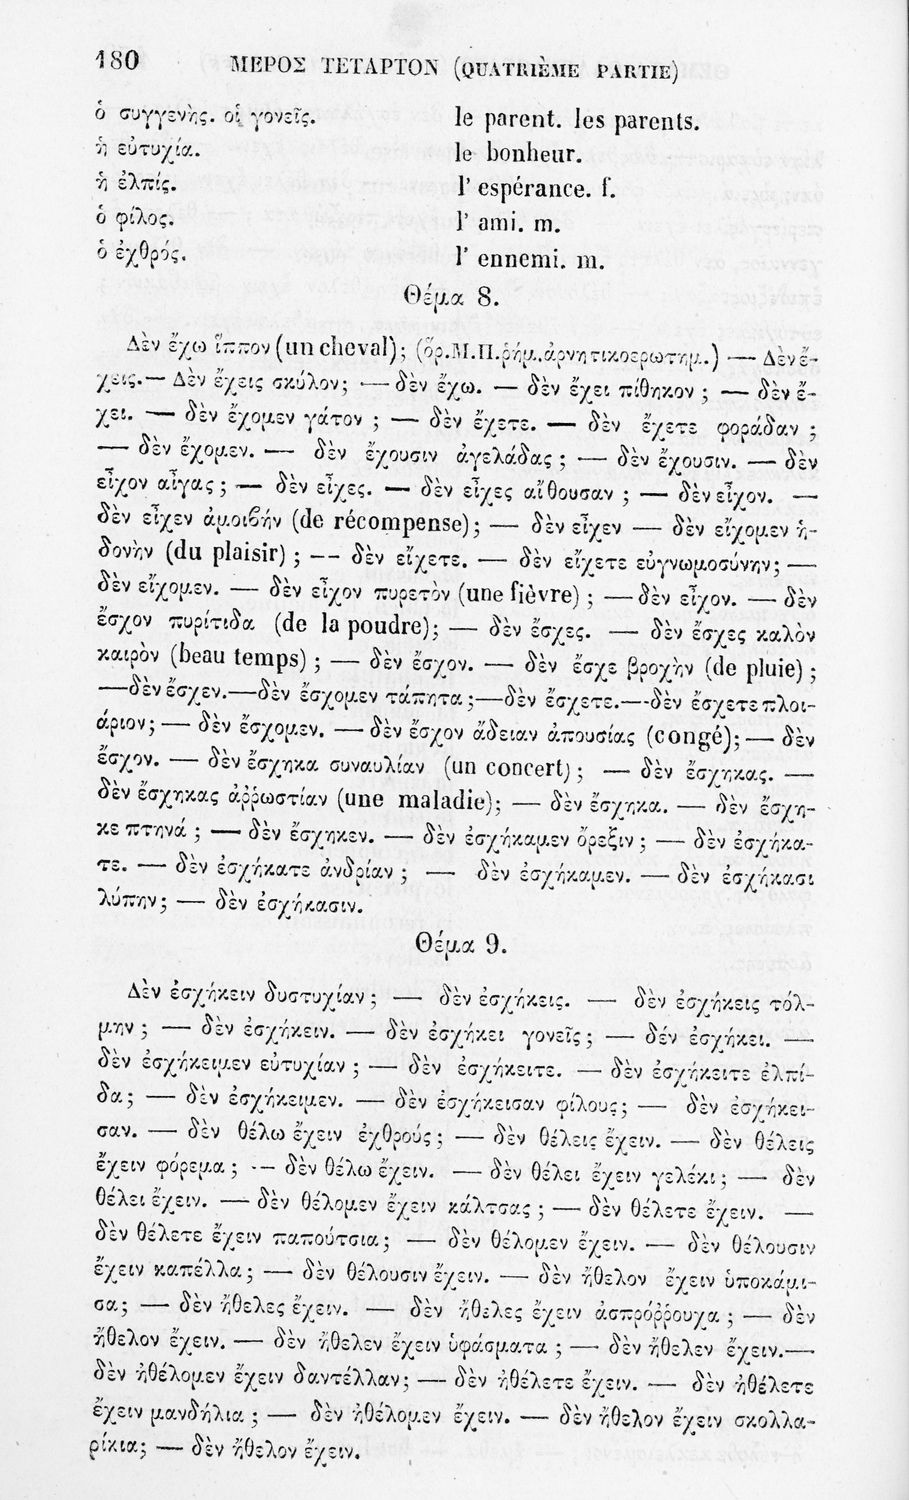 180 ΜΕΡΟΣ ΤΕΤΑΡΤΟΝ (QUATRIÈME PARTIE)
ὁ συγγενὴς. οἱ γονεῖς. le parent. les parents.
ἡ εὐτυχία. le bonheur.
ἡ ἐλπίς. l' espérance. f.
ὁ φίλος. l' ami. m.
ὁ ἐχθρός. l' ennemi. m.
Θέμα 8.
Δὲν ἔχω ἵππον (un cheval); (ὅρ.Μ.Π.ῥήμ.ἀρνητικοερωτημ.) — Δὲν ἔ-
χεις.— Δὲν ἔχεις σκύλον; — δὲν ἔχω. — δὲν ἔχει πίθηκον ; — δὲν ἔ-
χει. — δὲν ἔχομεν γάτον ; — δὲν ἔχετε. — δὲν ἔχετε φοράδαν ;
— δὲν ἔχομεν. — δὲν ἔχουσιν ἀγελάδας ; — δὲν ἔχουσιν. — δὲν
εἶχον αἶγας ; — δὲν εἶχες. — δὲν εἶχες αἴθουσαν ; — δὲν εἶχον. —
δὲν εἶχεν ἀμοιβήν (de récompense); — δὲν εἶχεν — δὲν εἴχομεν ἡ-
δονὴν (du plaisir) ; -- δὲν εἴχετε. — δὲν εἴχετε εὐγνωμοσύνην; —
δὲν εἴχομεν. — δὲν εἶχον πυρετὸν (une fièvre) ; — δὲν εἶχον. — δὲν
ἔσχον πυρίτιδα (de la poudre); — δὲν ἔσχες. — δὲν ἔσχες καλὸν
καιρὸν (beau temps) ; — δὲν ἔσχον. — δὲν ἔσχε βροχὴν (de pluie) ;
—δὲν ἔσχεν.—δὲν ἔσχομεν τάπητα ;—δὲν ἔσχετε.—δὲν ἔσχετε πλοι-
άριον; — δὲν ἔσχομεν. — δὲν ἔσχον ἄδειαν ἀπουσίας (congé); — δὲν
ἔσχον. — δὲν ἔσχηκα συναυλίαν (un concert) ; — δὲν ἔσχηκας. —
δὲν ἔσχηκας ἀῤῥωστίαν (une maladie); — δὲν ἔσχηκα. — δὲν ἔσχη-
κε πτηνά ; — δὲν ἔσχηκεν. — δὲν ἐσχήκαμεν ὄρεξιν ; — δὲν ἐσχήκα-
τε. — δὲν ἐσχήκατε ἀνδρίαν ; — δὲν ἐσχήκαμεν. — δὲν ἐσχήκασι
λύπην; — δὲν ἐσχήκασιν.
Θέμα 9.
Δὲν ἐσχήκειν δυστυχίαν ; — δὲν ἐσχήκεις. — δὲν ἐσχήκεις τόλ-
μην ; — δὲν ἐσχήκειν. — δὲν ἐσχήκει γονεῖς ; — δέν ἐσχήκει. —
δὲν ἐσχήκειμεν εὐτυχίαν ; — δὲν ἐσχήκειτε. — δὲν ἐσχήκειτε ἐλπί-
δα; — δὲν ἐσχήκειμεν. — δὲν ἐσχήκεισαν φίλους; — δὲν ἐσχήκει-
σαν. — δὲν θέλω ἔχειν ἐχθρούς ; — δὲν θέλεις ἔχειν. — δὲν θέλεις
ἔχειν φόρεμα ; -- δὲν θέλω ἔχειν. — δὲν θέλει ἔχειν γελέκι ; — δὲν
θέλει ἔχειν. — δὲν θέλομεν ἔχειν κάλτσας ; — δὲν θέλετε ἔχειν. —
δὲν θέλετε ἔχειν παπούτσια; — δὲν θέλομεν ἔχειν. — δὲν θέλουσιν
ἔχειν καπέλλα; — δὲν θέλουσιν ἔχειν. — δὲν ἤθελον ἔχειν ὑποκάμι-
σα; — δὲν ἤθελες ἔχειν. — δὲν ἤθελες ἔχειν ἀσπρόῤῥουχα ; — δὲν
ἤθελον ἔχειν. — δὲν ἤθελεν ἔχειν ὑφάσματα ; — δὲν ἤθελεν ἔχειν.—
δὲν ἠθέλομεν ἔχειν δαντέλλαν; — δὲν ἠθέλετε ἔχειν. — δὲν ἠθέλετε
ἔχειν μανδήλια ; — δὲν ἠθέλομεν ἔχειν. — δὲν ἤθελον ἔχειν σκολλα-
ρίκια; — δὲν ἤθελον ἔχειν.